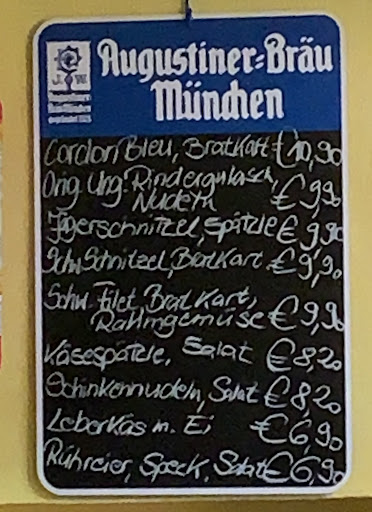 Augustiner-Bräu
München
J. W.
Cordon Bleu, Bratkart. €10,90
Orig. Ung. Rindergulasch,
Nudeln €9,90
Jägerschnitzel, Spätzle €9,90
Schw. Schnitzel, Bratkart €9,90
Schw. Filet, Brat Kart,
Rahmgemüse €9,90
Käsespätzle, Salat €8,20
Schinkennudeln, Salat €8,20
Leberkäs m. Ei €6,90
Rühreier, Speck, Salat €6,90